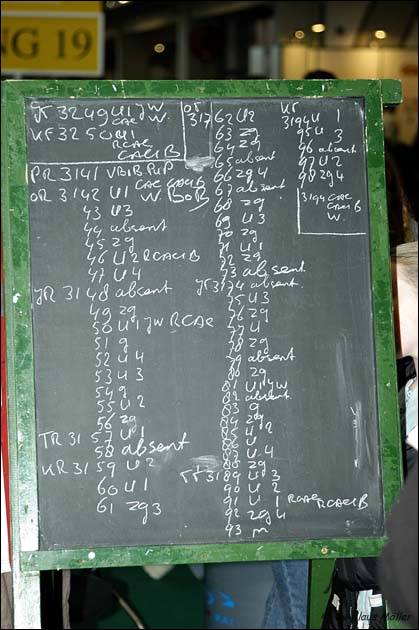 NG 19
JR 3249 U1 JW
CAC W.
KF 3250 U1
RCAC
CACIB
PR 3141 VB1B PUP
OR 3142 U1 CAC CACIB
W. BOB
43 U3
44 absent
45 zg
46 U2 RCACIB
47 U4
JR 3148 absent
49 zg
50 U1 JW RCAC
51 g
52 U4
53 U3
54 g
55 U2
56 zg
TR 3157 U1
58 absent
KR 3159 U2
60 U1
61 zg3
OR
317
62 U2
63 zg
64 zg
65 absent
66 zg4
67 absent
68 zg
69 U3
70 zg
71 U1
72 zg
73 absent
JR 3174 absent
75 U3
76 zg
77 U
78 zg
79 absent
80 zg
81 U1 JW
82 absent
83 g
84 zg
85 U2
86 U
87 U4
88 zg
TT 3189 U3
90 U2
91 U1 RCAC RCACIB
92 zg4
93 m
KF
3194 U 1
95 U 3
96 absent
97 U2
98 zg4
3194 CAC
CACIB
W.
Klaus Möller